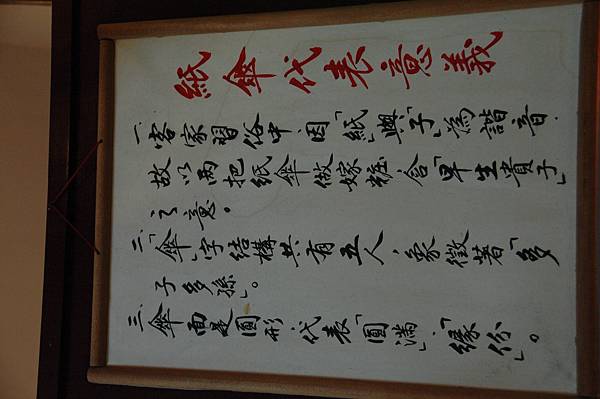 紙傘代表意義
一.客家習俗中因「紙」與「子」為諧音.
故以兩把紙傘做嫁粧含「早生貴子」
之意。
二.「傘」字結構共有五人,象徵著「多
子多孫」。
三.傘面是圓形.代表「圓滿」.「緣份」。